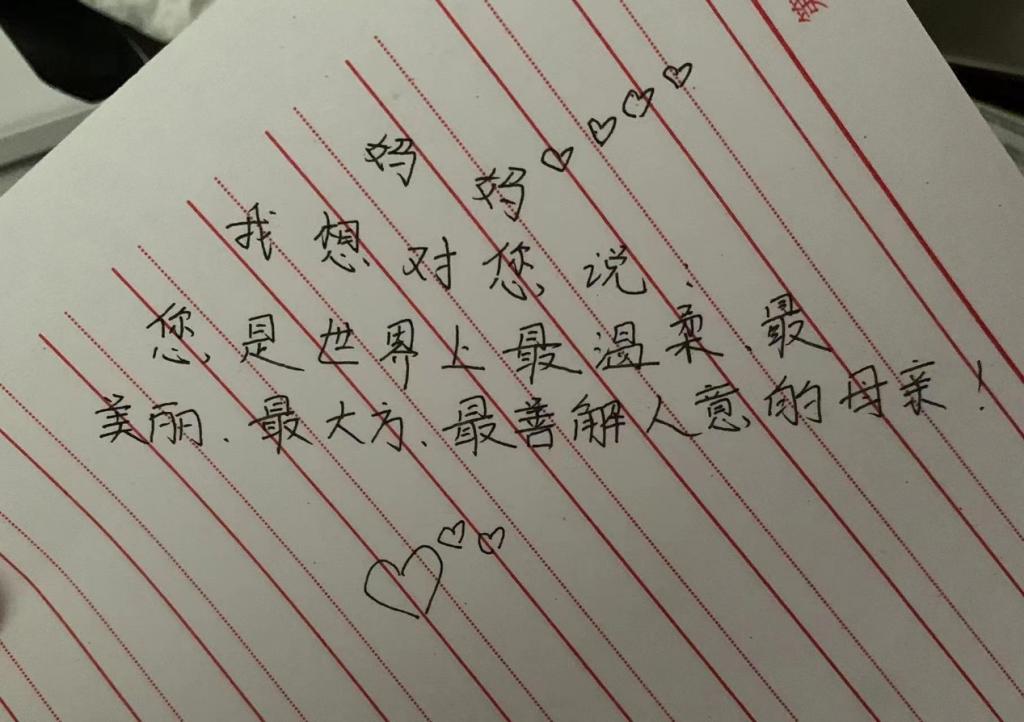 妈妈♡♡♡♡
我想对您说:
您是世界上最温柔、最
美丽、最大方、最善解人意的母亲!
♡♡♡